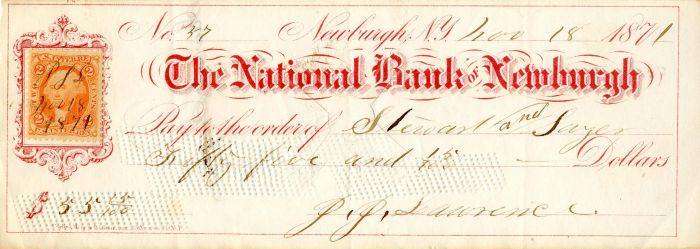 No. 37 Newburgh, N.Y. Nov 18 1871
The National Bank of Newburgh
Pay to the order of Stewart and Sayer
Fifty five and 25/100 Dollars
$ 55 25/100
J. J. Lawrence
U.S. INTER. REV.
2 2
Nov 18
1871